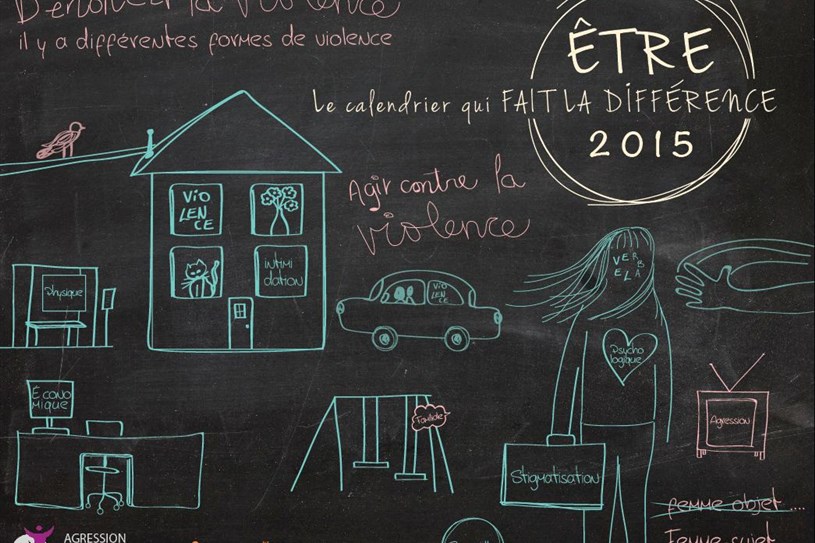 Dénoncer la violence
il y a différentes formes de violence
ÊTRE
Le calendrier qui FAIT LA DIFFÉRENCE
2015
Agir contre la
violence
VIO
LEN
CE
intimi
dation
Physique
VIO
LEN
CE
VER
BELA
Psycho
logique
ÉCONO
MIQUE
Agression
Stigmatisation
femme objet ....
Femme sujet
AGRESSION